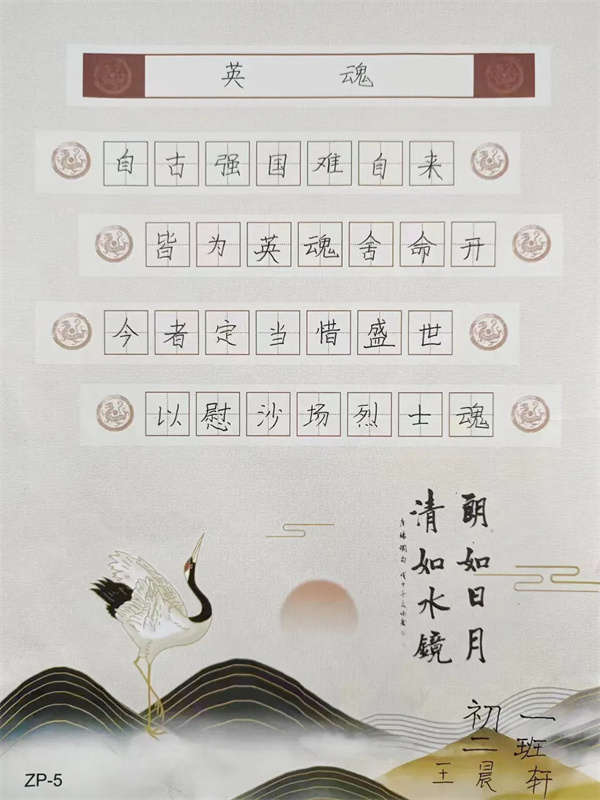 英魂
自古强国难自来
皆为英魂舍命开
今者定当惜盛世
以慰沙场烈士魂
朗如日月
清如水鏡
初二
一班
王晨轩
ZP-5